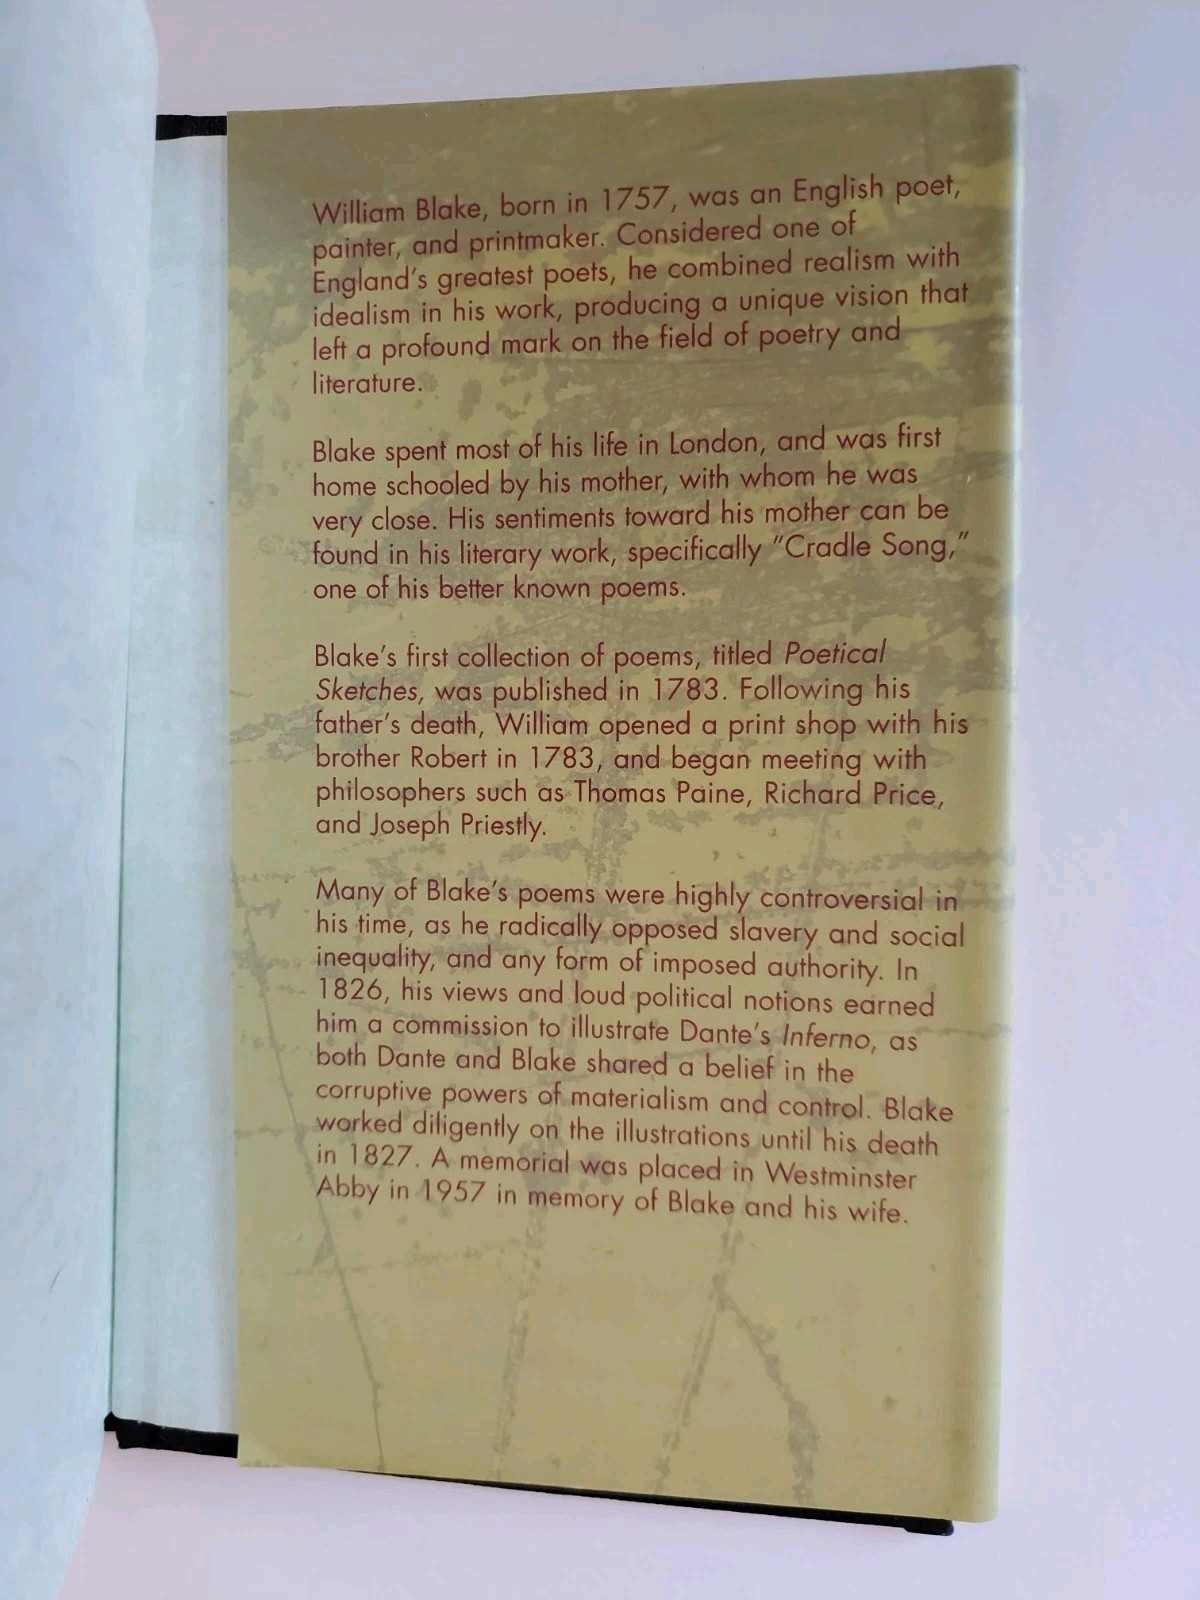 William Blake, born in 1757, was an English poet,
painter, and printmaker. Considered one of
England's greatest poets, he combined realism with
idealism in his work, producing a unique vision that
left a profound mark on the field of poetry and
literature.
Blake spent most of his life in London, and was first
home schooled by his mother, with whom he was
very close. His sentiments toward his mother can be
found in his literary work, specifically "Cradle Song,"
one of his better known poems.
Blake's first collection of poems, titled Poetical
Sketches, was published in 1783. Following his
father's death, William opened a print shop with his
brother Robert in 1783, and began meeting with
philosophers such as Thomas Paine, Richard Price,
and Joseph Priestly.
Many of Blake's poems were highly controversial in
his time, as he radically opposed slavery and social
inequality, and any form of imposed authority. In
1826, his views and loud political notions earned
him a commission to illustrate Dante's Inferno, as
both Dante and Blake shared a belief in the
corruptive powers of materialism and control. Blake
worked diligently on the illustrations until his death
in 1827. A memorial was placed in Westminster
Abby in 1957 in memory of Blake and his wife.